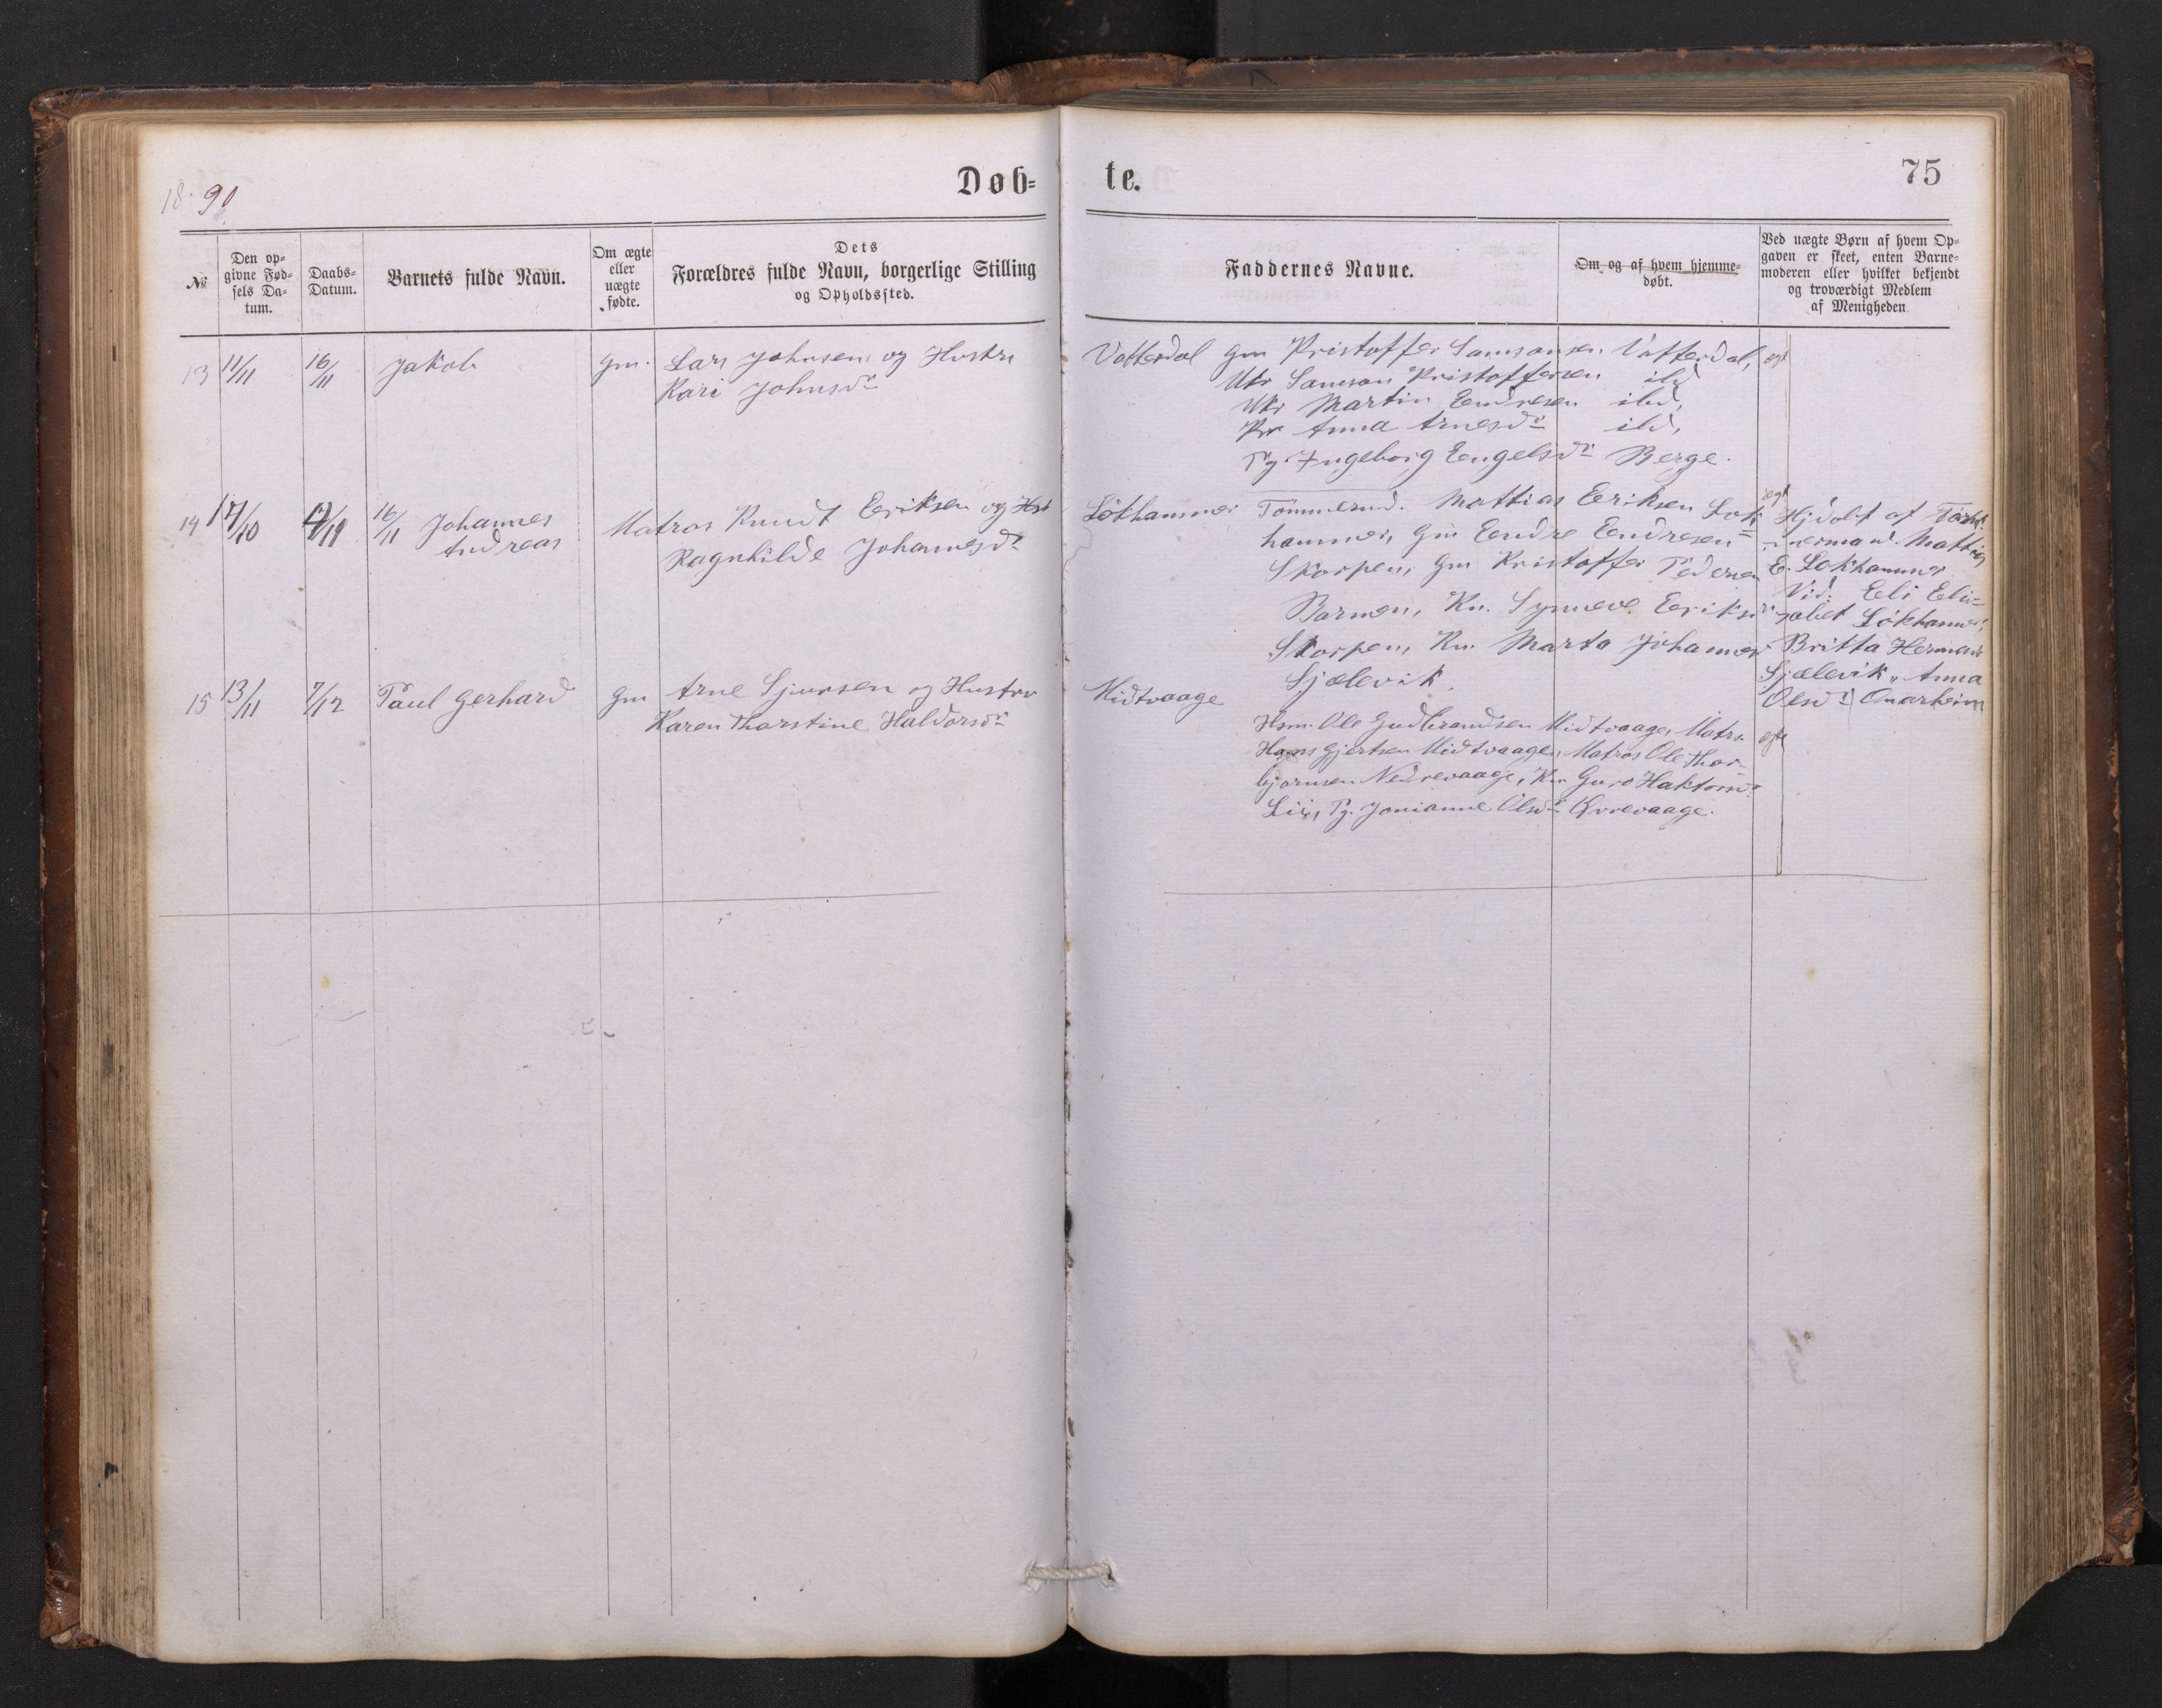 18 90
Døb-
te.
75
№
Den op-
givne Fød-
sels Da-
tum.
Daabs-
Datum.
Barnets fulde Navn.
Om ægte
eller
uægte
fødte.
Dets
Forældres fulde Navn, borgerlige Stilling
og Opholdssted.
Faddernes Navne.
Om, og af hvem hjemme-
døbt.
Ved uægte Børn af hvem Op-
gaven er skeet, enten Barne-
moderen eller hvilket bekjendt
og troværdigt Medlem
af Menigheden
13 11/11 16/11 Jakob gm. Lars Johnsen og Hustru
Kari Johnsdr
Vatterdal gm Kristoffer Samsonsen Vatterdal, ægt
Ukr Samson Kristoffersen ibd
Ukr Martin Endresen ibd,
Kr Anna Arnesdr ibd,
Pg. Ingeborg Engelsdr Berge.
14 17/10 16/11 Johannes
Andreas
Matros Knudt Eriksen og Hst
Ragnhilde Johannesdr
Løkhammer Tømmermd. Mattias Eriksen Løk-
hammer, Gm Endre Endresen
Skorpen, Gm Kristoffer Pedersen
Barmen, Kn. Synneve Eriksdr
Skorpen, Kn. Marta Johannesdr
Sjælevik.
ægt
Hjdøbt af Tøm-
mermand Mattias
E. Løkhammer
Vid: Eli Eli-
sabet Løkhammer,
Britta Hermans
Sjælevik, Anna
Olsdr Onarheim
15 13/11 7/12 Paul Gerhard gm Arne Sjursen og Hustru
Karen Thorstine Haldorsdr
Midtvaage
Hsm. Ole Gudbrandsen Midtvaage, Matrs ægt
Hans Gjertsen Midtvaage, Matros Ole Thor-
bjørnsen Nedrevaage, Kn Guro Haktorsdr
Lii, Pg. Jonianne Olsdr Øvrevaage.